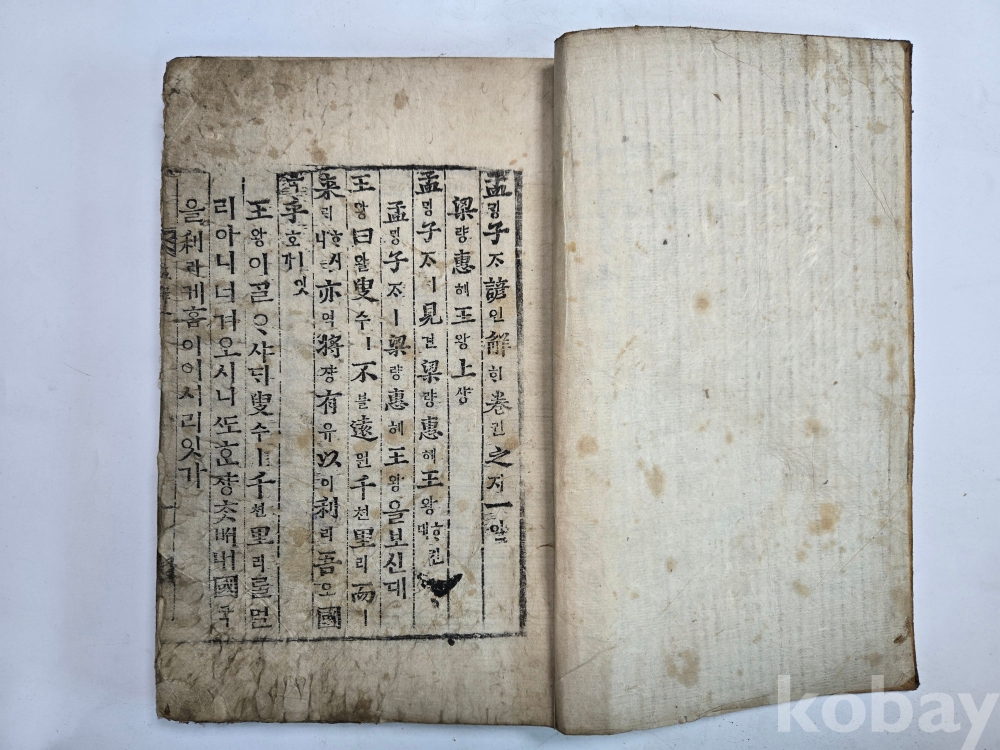 孟ᄆᆡᆼ子ᄌᆞ諺언解ᄒᆡ卷권之지一일
梁량惠혜王왕上샹
孟ᄆᆡᆼ子ᄌᆞㅣ見견梁량惠혜王왕ᄒᆞ신대
孟ᄆᆡᆼ子ᄌᆞㅣ梁량惠혜王왕을보신대
王왕曰왈叟수ㅣ不블遠원千쳔里리而이
來ᄅᆡᄒᆞ시니亦역將쟝有유以이利리吾오國
국乎호ㅣ잇가
王왕이ᄀᆞᆯᄋᆞ샤ᄃᆡ叟수ㅣ千쳔里리ᄅᆞᆯ멀
리아니너겨오시니ᄯᅩᄒᆞᆫ쟝ᄎᆞᆺᄡᅥ내國국
을利리케홈이이시리잇가
kobay